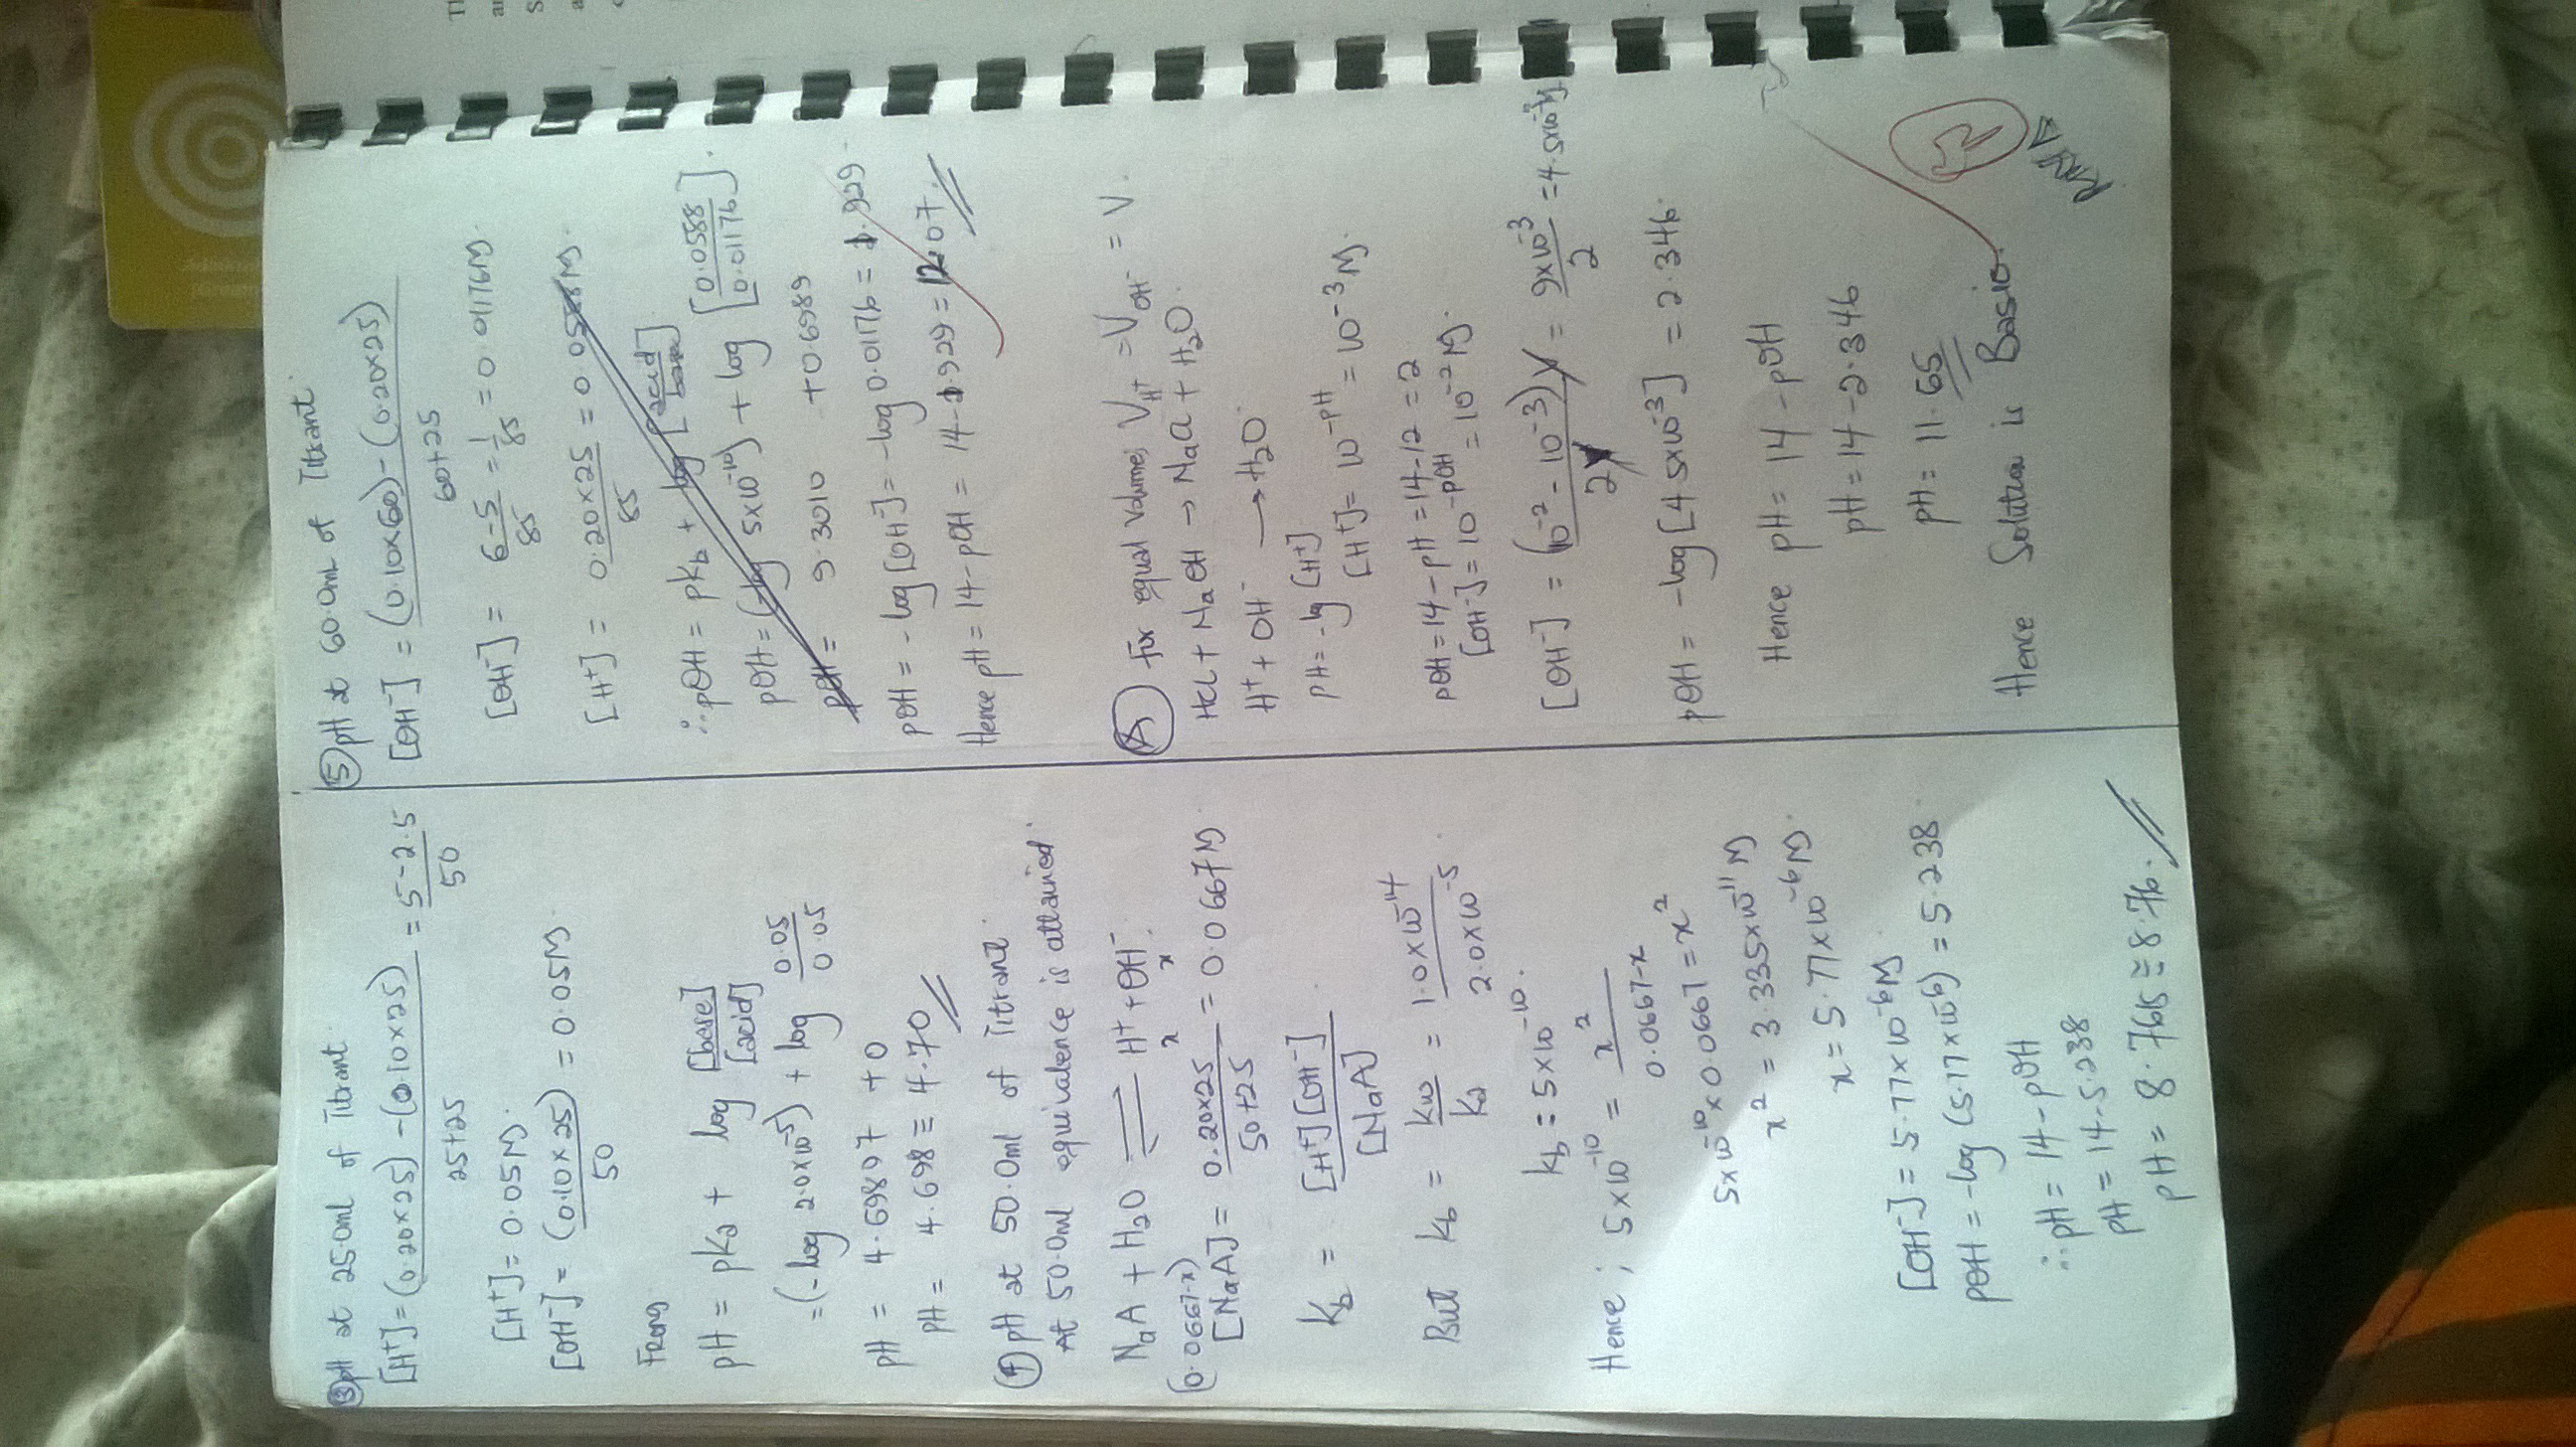 ③ pH at 25.0ml of Titrant.
[H⁺] = (0.20×25) - (0.10×25) = 5-2.5
25+25 50
[H⁺] = 0.05M.
[OH⁻] = (0.10×25) = 0.05M.
50
From
pH = pKa + log [base]
[acid]
= (-log 2.0×10⁻⁵) + log 0.05
0.05
pH = 4.69807 + 0
pH = 4.698 ≡ 4.70
④ pH at 50.0ml of Titrant.
At 50.0ml equivalence is attained.
NaA + H₂O ⇌ H⁺ + OH⁻.
(0.0667-x) x x
[NaA] = 0.20×25 = 0.0667M.
50+25
Kb = [H⁺][OH⁻].
[NaA]
But Kb = Kw = 1.0×10⁻¹⁴
Ka 2.0×10⁻⁵.
Kb = 5×10⁻¹⁰.
Hence; 5×10⁻¹⁰ = x²
0.0667-x
5×10⁻¹⁰ × 0.0667 = x²
x² = 3.335×10⁻¹¹ M
x = 5.77×10⁻⁶M.
[OH⁻] = 5.77×10⁻⁶M
pOH = -log (5.77×10⁻⁶) = 5.238.
∴ pH = 14 - pOH
pH = 14-5.238
pH = 8.7615 ≅ 8.76.
⑤ pH at 60.0ml of Titrant.
[OH⁻] = (0.10×60) - (0.20×25)
60+25
[OH⁻] = 6-5 = 1 = 0.01176M.
85 85
[H⁺] = 0.20×25 = 0.0588M.
85
∴ pOH = pKb + log [acid]
[base]
pOH = (-log 5×10⁻¹⁰) + log [0.0588]
[0.01176]
pOH = 9.3010 + 0.6989
pOH = -log [OH⁻] = -log 0.01176 = 1.929.
Hence pH = 14 - pOH = 14-1.929 = 12.07.
For equal Volume; V H⁺ = V OH⁻ = V.
HCl + NaOH → NaCl + H₂O.
H⁺ + OH⁻ → H₂O
pH = -lg [H⁺]
[H⁺] = 10⁻ᵖᴴ = 10⁻³M.
pOH = 14 - pH = 14-12 = 2
[OH⁻] = 10⁻ᵖᴼᴴ = 10⁻²M.
[OH⁻] = (10⁻² - 10⁻³)V = 9×10⁻³ = 4.5×10⁻³M
2V 2
pOH = -log [4.5×10⁻³] = 2.346.
Hence pH = 14 - pOH
pH = 14 - 2.346
pH = 11.65
Hence Solution is Basic.